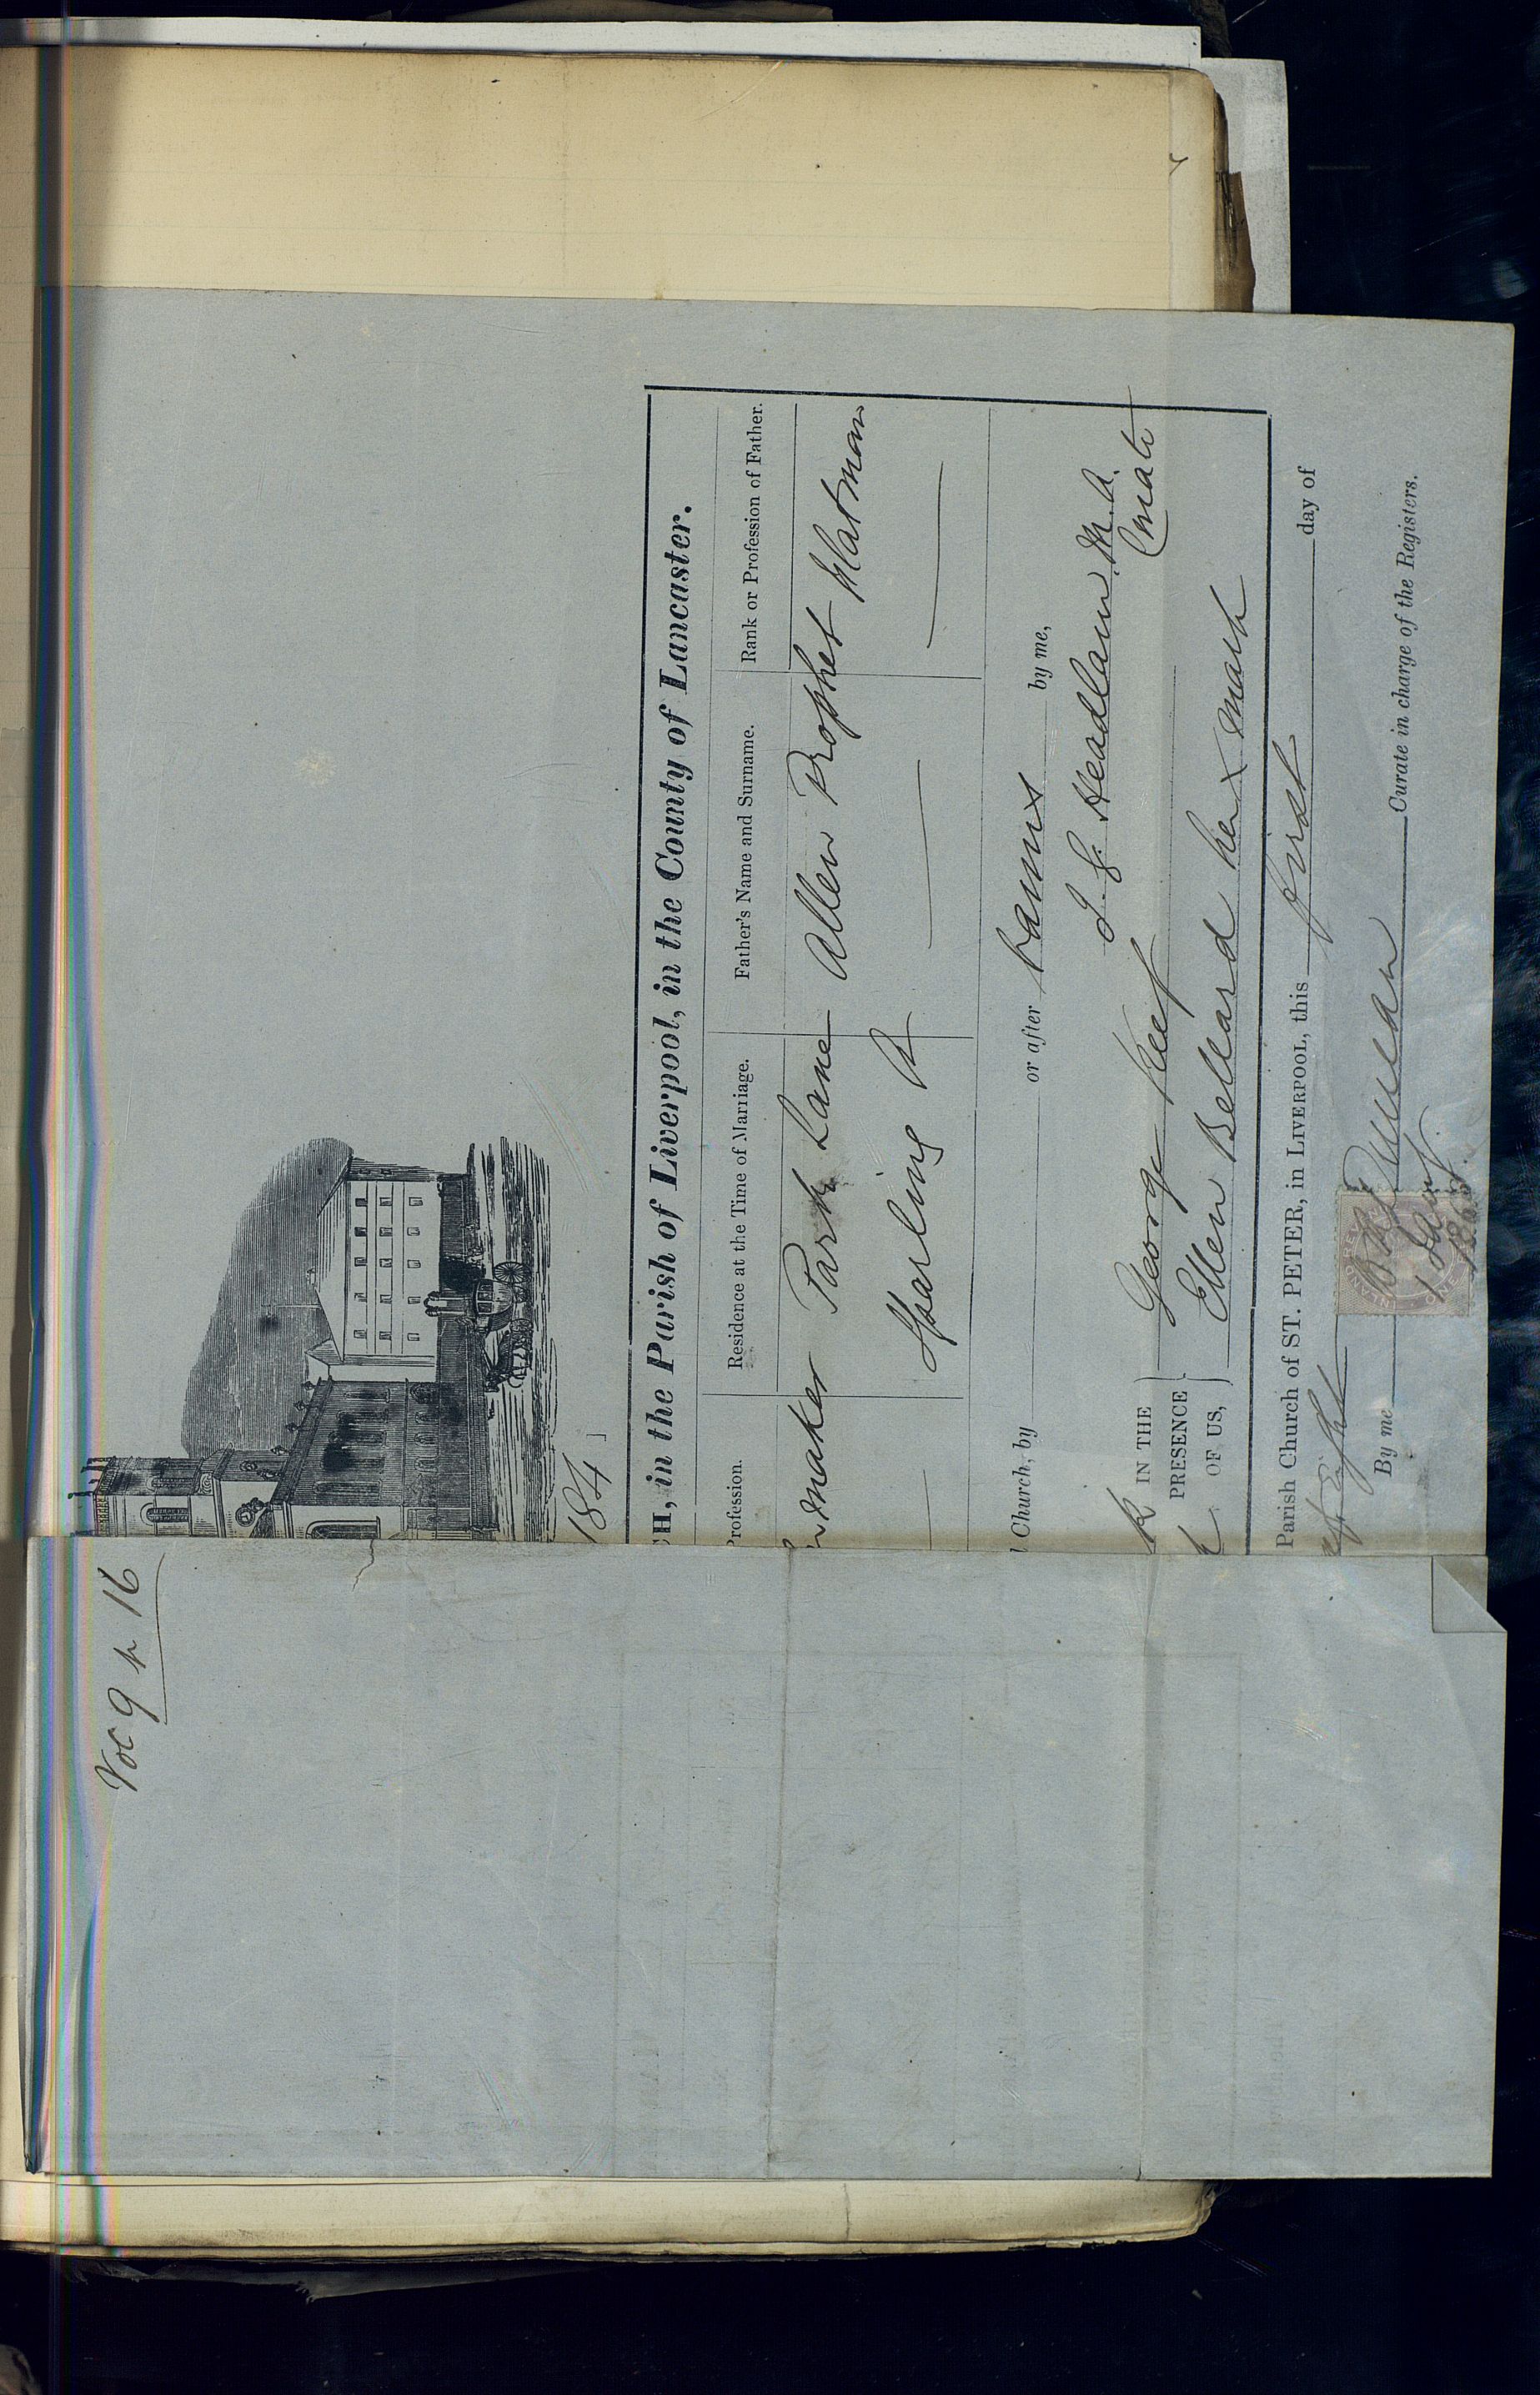 Vol 9 p 16
184
CH, in the Parish of Liverpool, in the County of Lancaster.
Profession. Residence at the Time of Marriage. Father's Name and Surname. Rank or Profession of Father.
maker Park Lane Allen Prophet Flatman
Sparling St
Church, by or after banns by me,
J. G. Headlam, M.A.
Curate
IN THE PRESENCE OF US,
George Keef
Ellen Bellard her x mark
Parish Church of ST. PETER, in LIVERPOOL, this first day of
Eight
By me Curate in charge of the Registers.
INLAND REVENUE